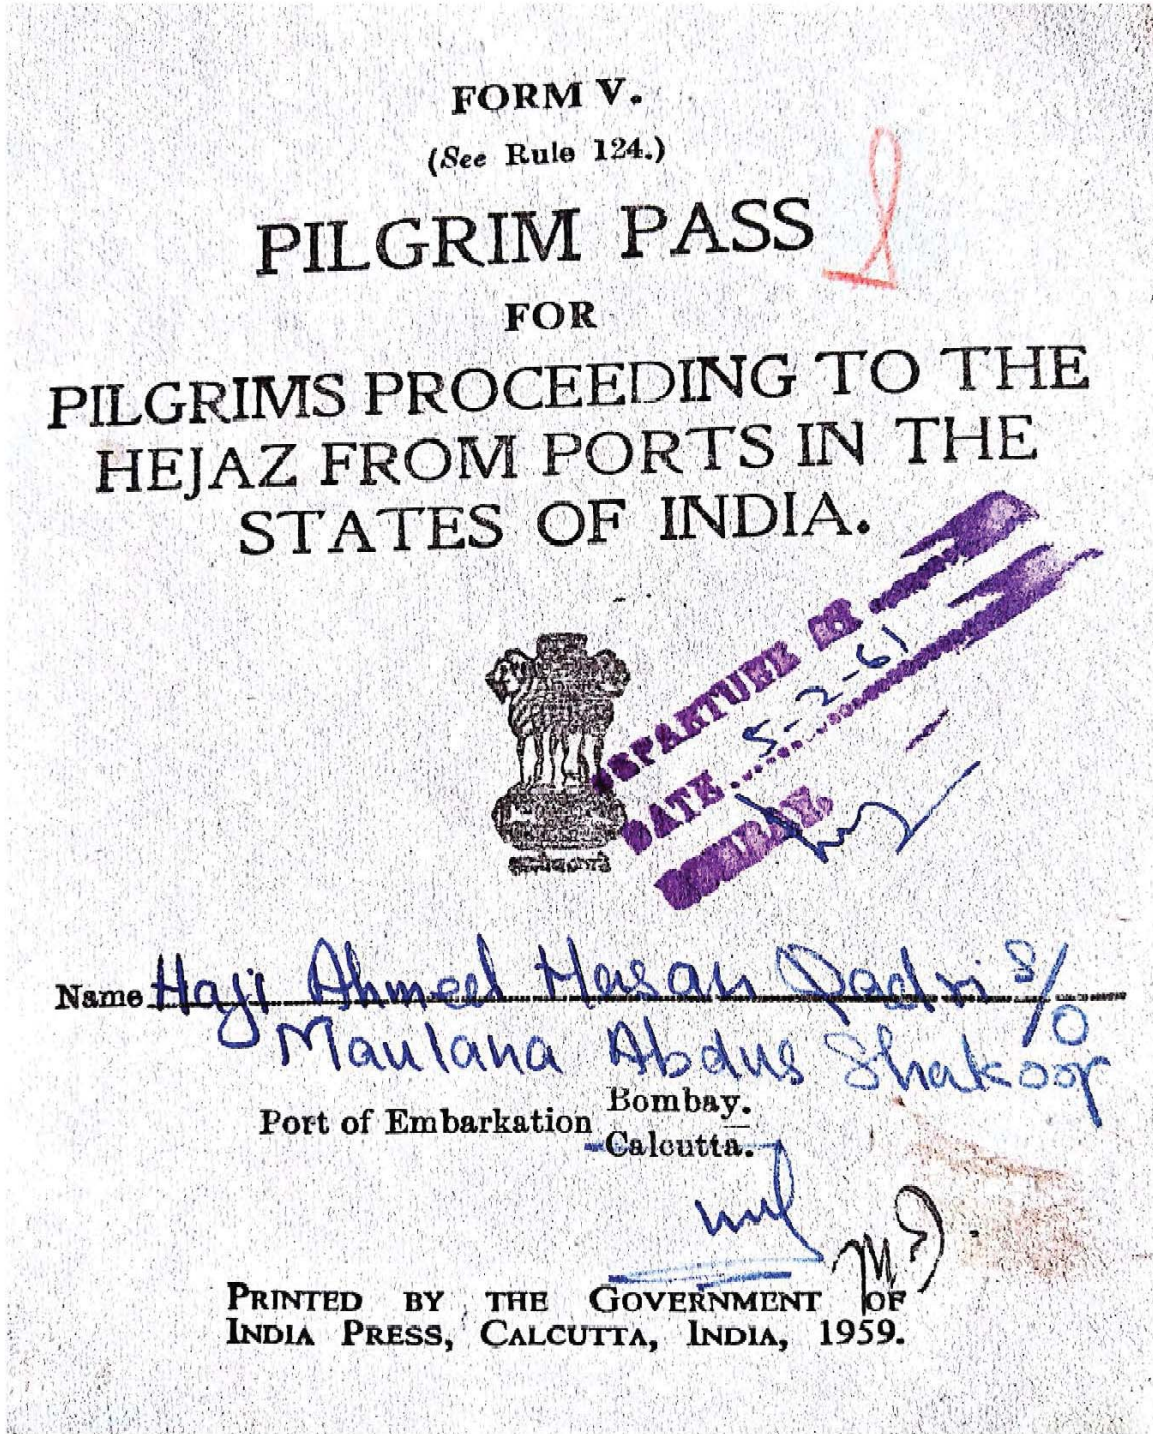 FORM V.
(See Rule 124.)
PILGRIM PASS
FOR
PILGRIMS PROCEEDING TO THE
HEJAZ FROM PORTS IN THE
STATES OF INDIA.
DEPARTURE BY
DATE 5-2-61
BOMBAY.
Name Haji Ahmed Hasan Qadri S/O
Maulana Abdus Shakoor
Port of Embarkation Bombay.
Calcutta.
PRINTED BY THE GOVERNMENT OF
INDIA PRESS, CALCUTTA, INDIA, 1959.